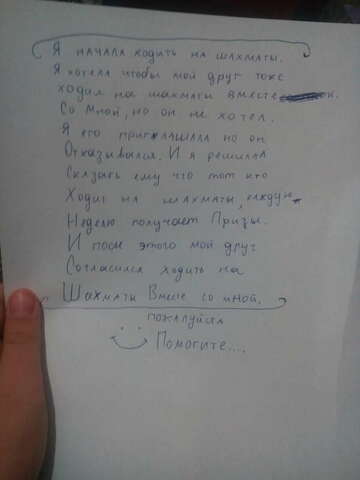 Я начала ходить на шахматы.
Я хотела чтобы мой друг тоже
ходил на шахматы вместе
Со мной, но он не хотел.
Я его приглашала но он
Отказывался. И я решила
Сказать ему что тот кто
Ходит на шахматы, каждую
Неделю получает Призы.
И после этого мой друг
Согласился ходить на
Шахматы Вместе со мной.
пожалуйста
Помогите....